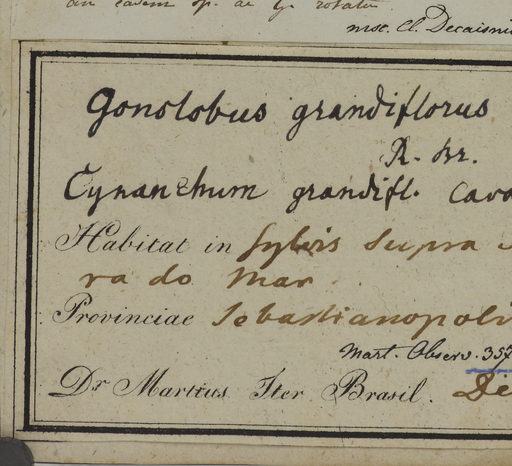 an eadem sp. ac G. rotatus
msc. Cl. Decaisne
Gonolobus grandiflorus
R. Br.
Cynanchum grandifl. Cava
Habitat in Sylvis Supra S
ra do Mar
Provinciae Sebastianopoli
Mart. Observ. 357
Dr Martius Iter Brasil. De